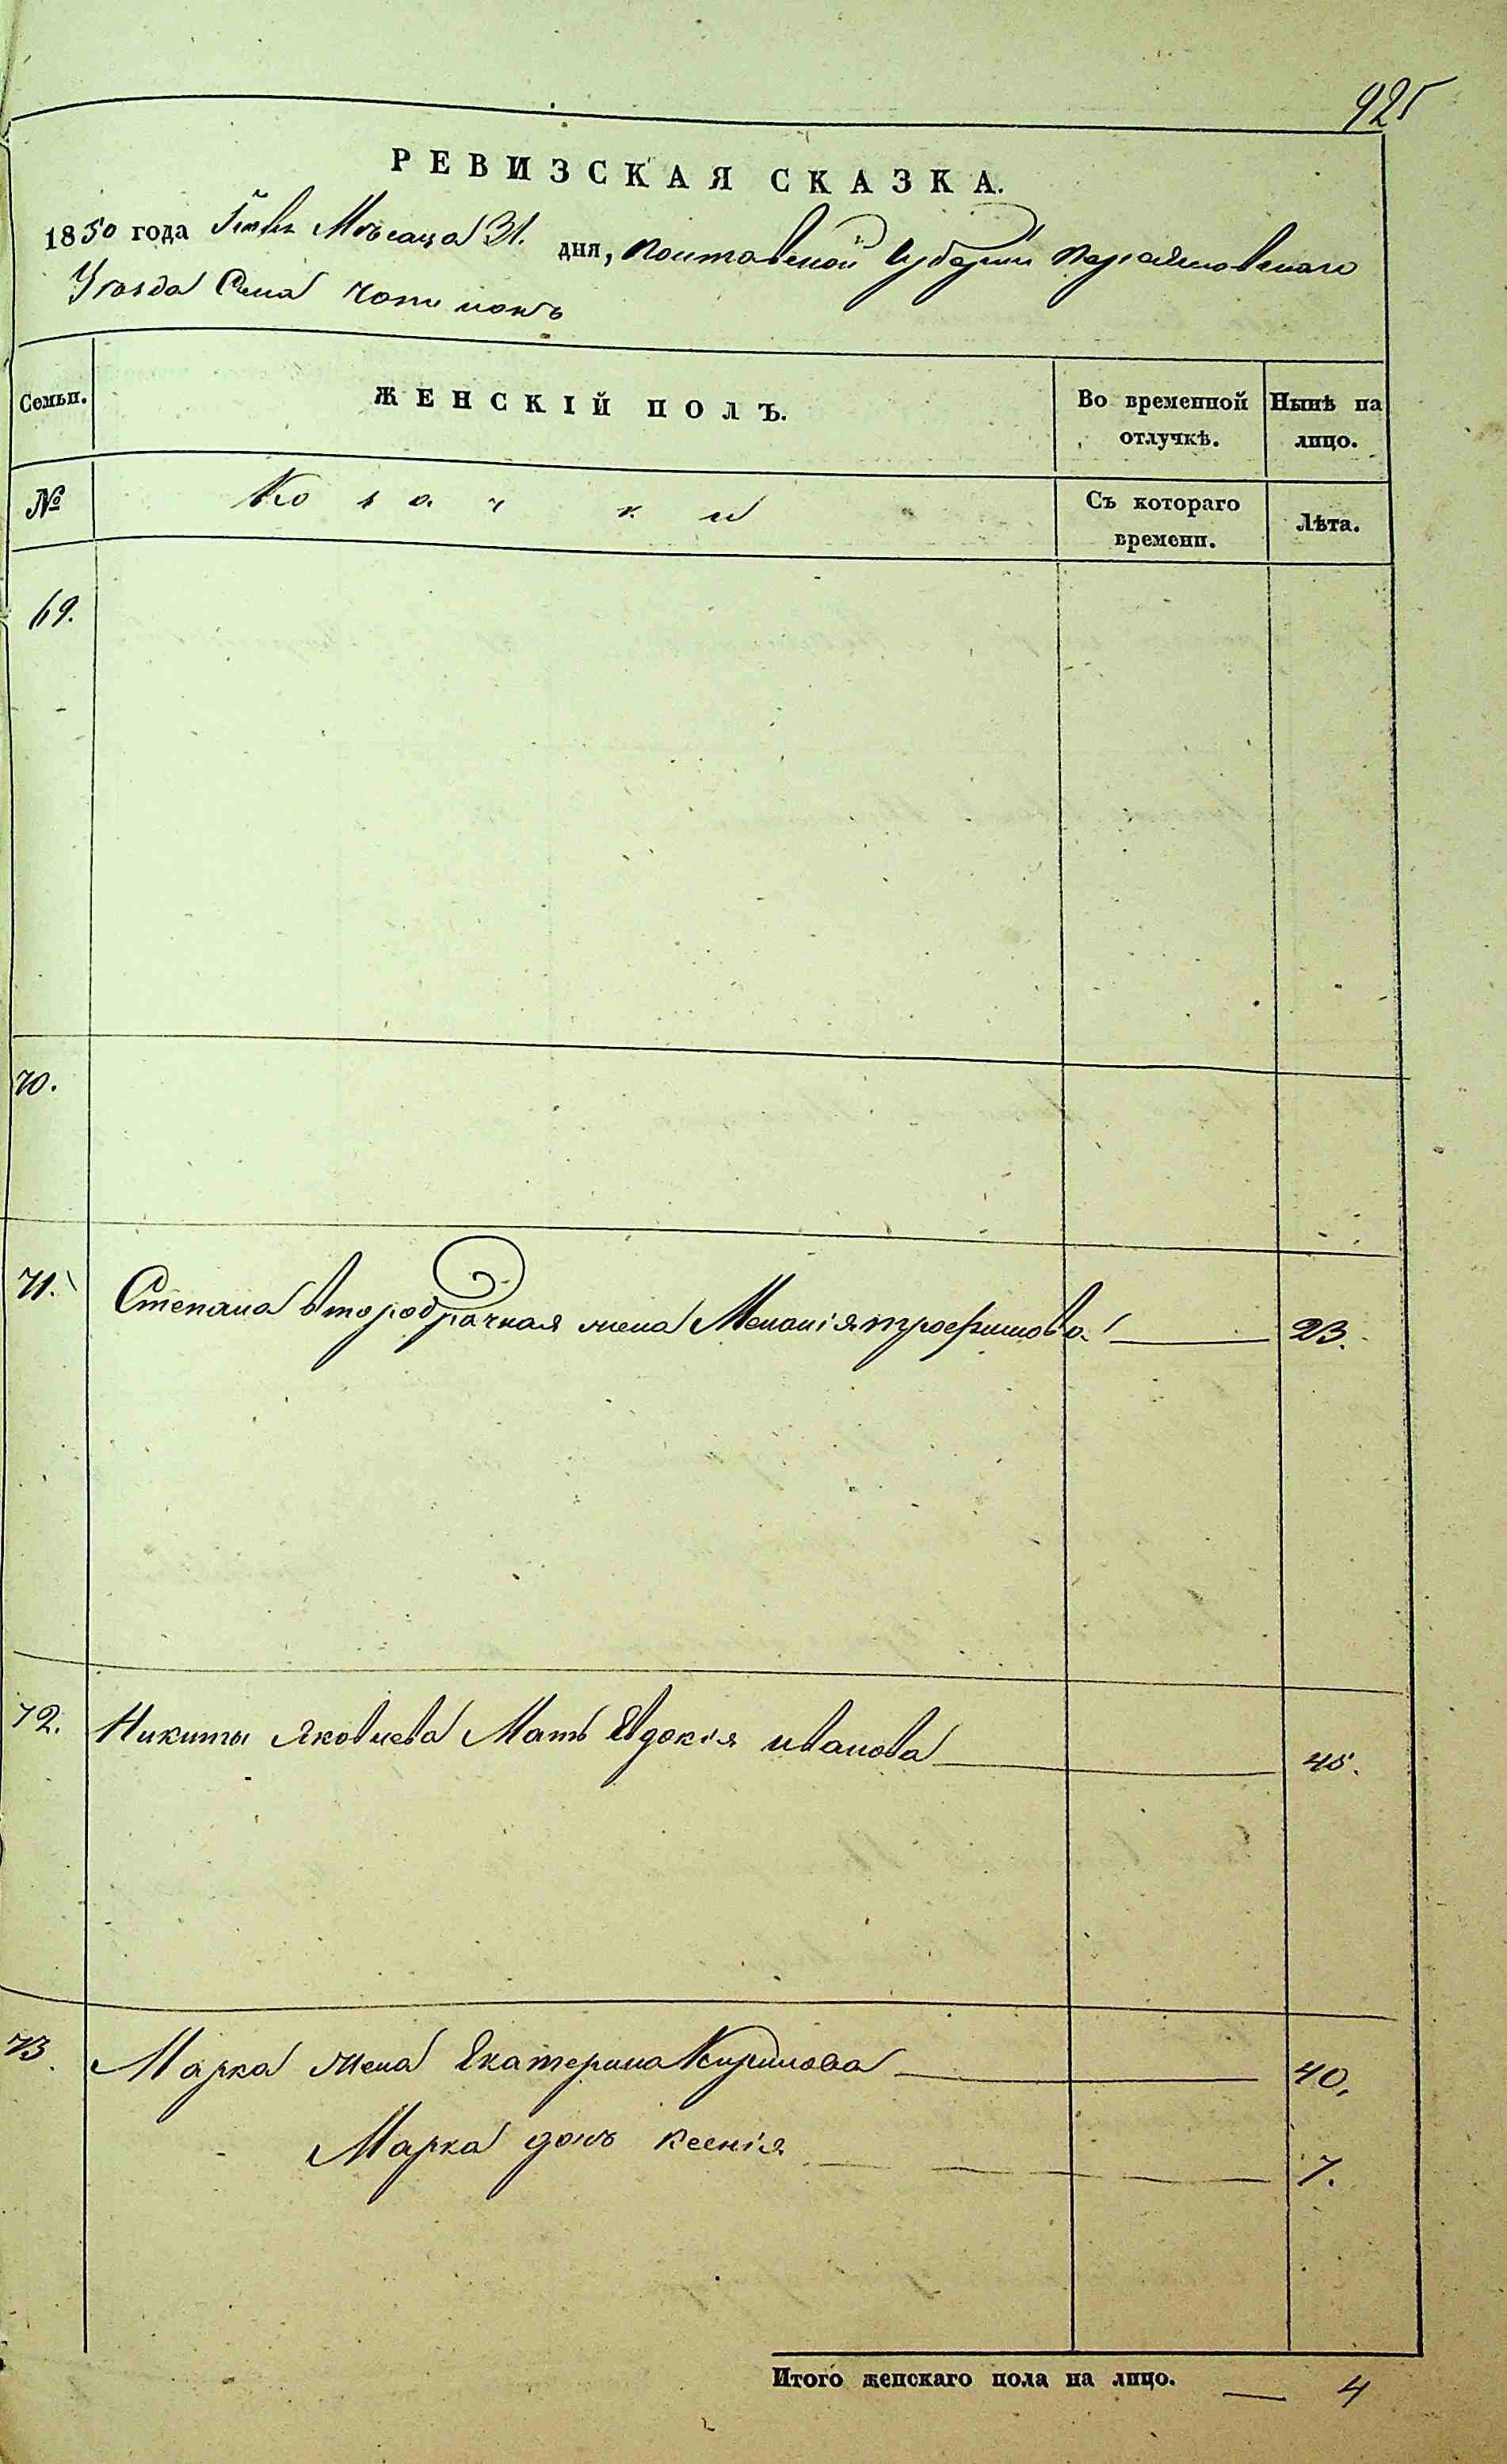 925
РЕВИЗСКАЯ СКАЗКА.
1850 года Мѣсяца 31. дня, Полтавской Губернии Переяславскаго
Уезда Села Хоцкокъ
Семьи. ЖЕНСКІЙ ПОЛЪ. Во временной отлучкѣ. Нынѣ на лицо.
№ Козачки Съ котораго времени. Лѣта.
69.
70.
71. Степана второбрачная жена Меланія трофимова 23.
72. Никиты Яковлева Мать Евдокія иванова 45.
73. Марка жена Екатерина Кирилова 40.
Марка дочь Ксенія 7.
Итого женскаго пола на лицо. 4